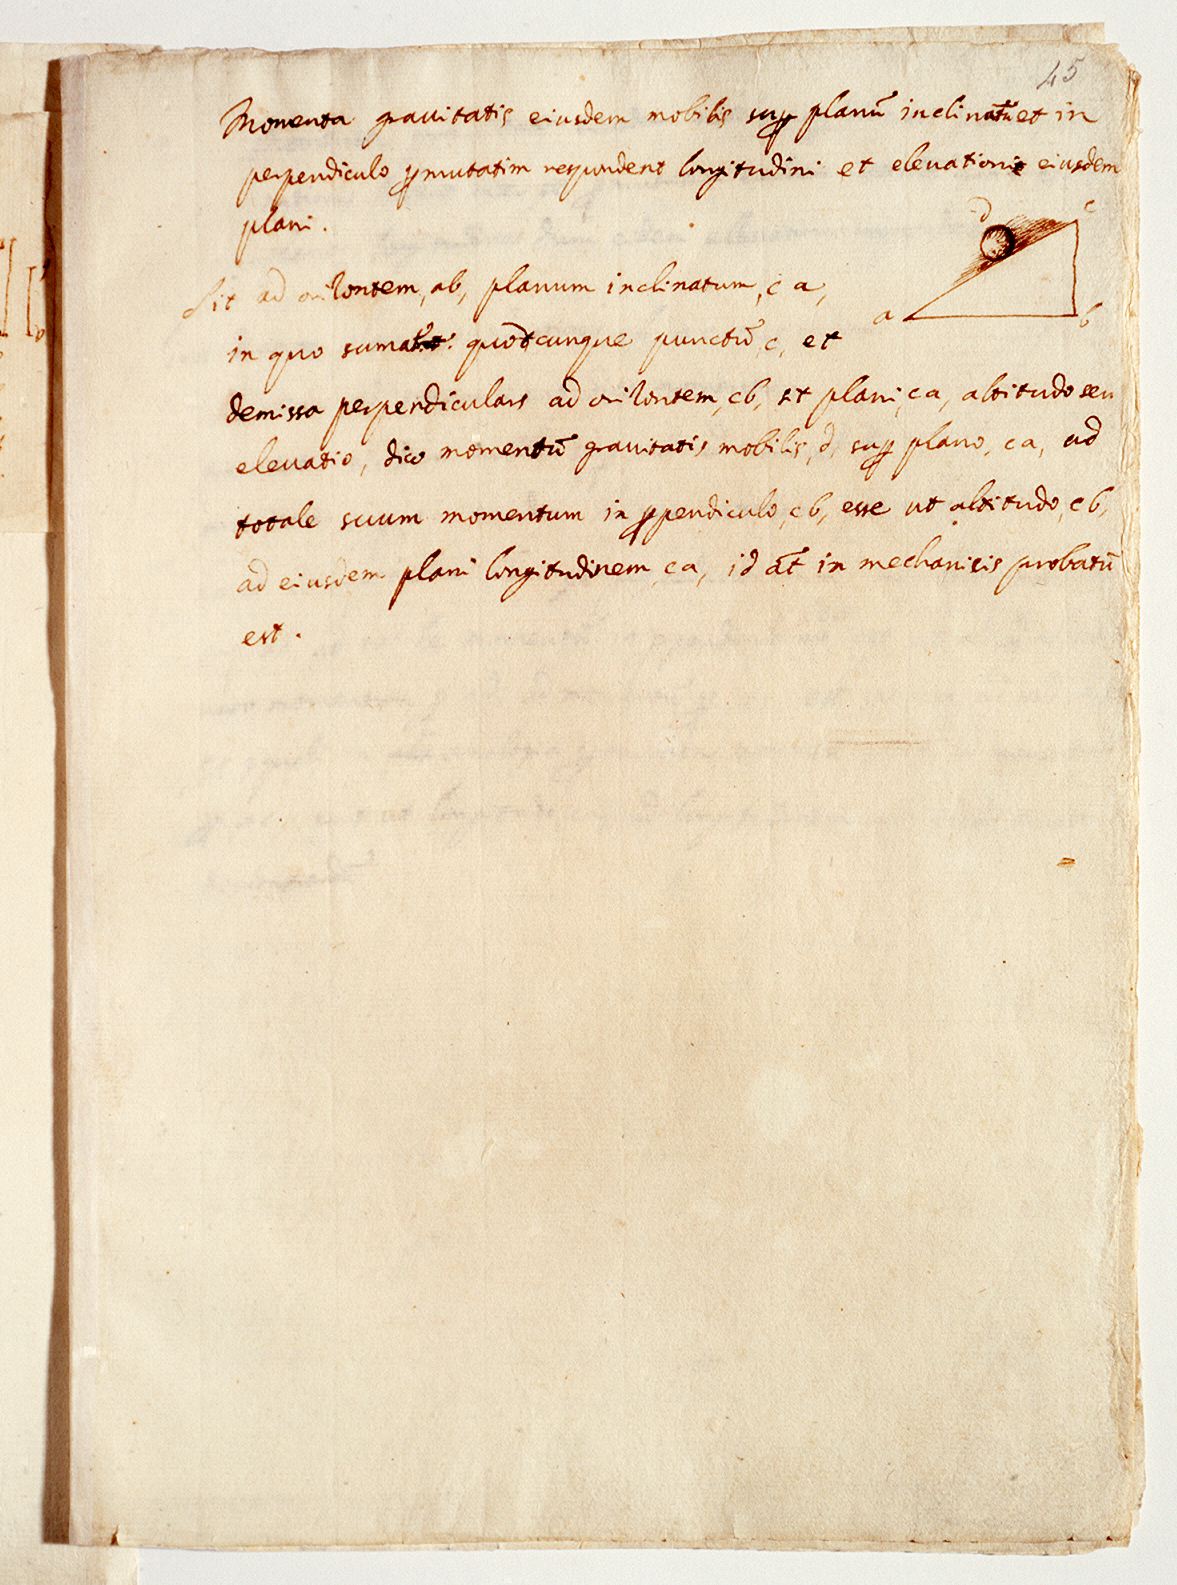 45
Momenta grauitatis eiusdem mobilis sup planū inclinatū et in
perpendiculo pmutatim respondent longitudini et elevationi eiusdem
plani.
d c
Sit ad orizontem, ab, planum inclinatum, ca,
a b
in quo sumat. quodcunque punctū, c, et
demissa perpendicularis ad orizontem, cb, sit plani, ca, altitudo seu
elevatio, dico momentū grauitatis mobilis, d, sup plano, ca, ad
totale suum momentum in ppendiculo, cb, esse ut altitudo, cb,
ad eiusdem plani longitudinem, ca, id at̄ in mechanicis probatū
est.